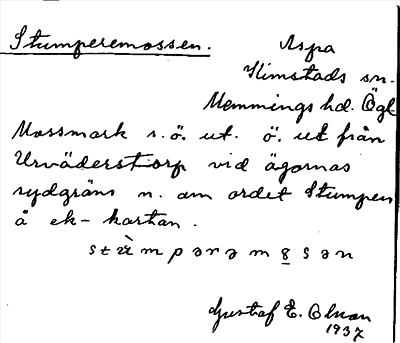 Stumperemossen.
Aspa
Kimstads sn.
Memmings hd. Ögl
Mossmark s.ö. ut. ö. ut från
Urväderstorp vid ägornas
sydgräns n. om ordet Stumpen
å ek-kartan.
Gustaf E. Olson
1937